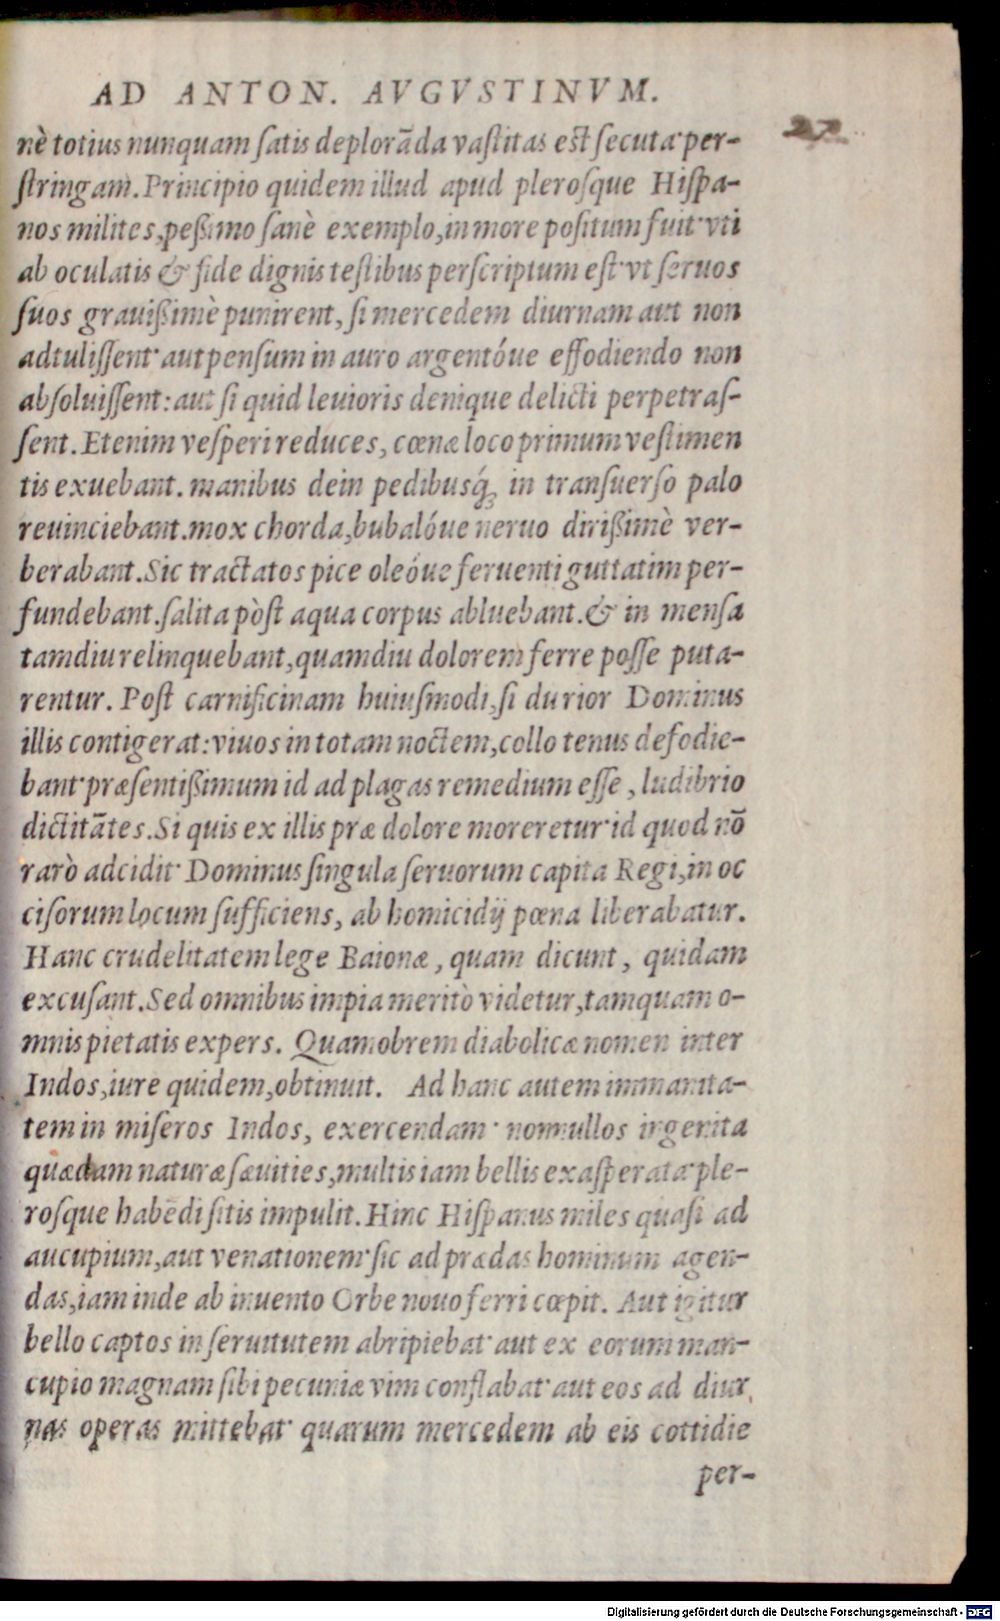 AD ANTON. AVGVSTINVM.
27
nè totius nunquam ſatis deplorãda vaſtitas eſt ſecuta· per-
ſtringam. Principio quidem illud apud pleroſque Hiſpa-
nos milites, peßimo ſanè exemplo, in more poſitum fuit· vti
ab oculatis & fide dignis teſtibus perſcriptum eſt· vt ſeruos
ſuos grauißimè punirent, ſi mercedem diurnam aut non
adtuliſſent· aut penſum in auro argentóue effodiendo non
abſoluiſſent: aut ſi quid leuioris denique delicti perpetraſ-
ſent. Etenim veſperi reduces, cœnæ loco primum veſtimen
tis exuebant. manibus dein pedibusq́; in transuerſo palo
reuinciebant. mox chorda, bubalóue neruo dirißimè ver-
berabant. Sic tractatos pice oleóue feruenti guttatim per-
fundebant. ſalita pòſt aqua corpus abluebant. & in menſa
tamdiu relinquebant, quamdiu dolorem ferre poſſe puta-
rentur. Poſt carnificinam huiuſmodi, ſi durior Dominus
illis contigerat: viuos in totam noctem, collo tenus defodie-
bant· præſentißimum id ad plagas remedium eſſe, ludibrio
dictitãtes. Si quis ex illis præ dolore moreretur· id quod nõ
rarò adcidit· Dominus ſingula ſeruorum capita Regi, in oc
ciſorum locum ſufficiens, ab homicidij pœna liberabatur.
Hanc crudelitatem lege Baionæ, quam dicunt, quidam
excuſant. Sed omnibus impia meritò videtur, tamquam o-
mnis pietatis expers. Quamobrem diabolicæ nomen inter
Indos, iure quidem, obtinuit. Ad hanc autem immanita-
tem in miſeros Indos, exercendam· nonnullos ingenita
quædam naturæ ſæuities, multis iam bellis exaſperata· ple-
roſque habẽdi ſitis impulit. Hinc Hiſpanus miles quaſi ad
aucupium, aut venationem· ſic ad prædas hominum agen-
das, iam inde ab inuento Orbe nouo ferri cœpit. Aut igitur
bello captos in ſeruitutem abripiebat· aut ex eorum man-
cupio magnam ſibi pecuniæ vim conflabat· aut eos ad diur,
nas operas mittebat· quarum mercedem ab eis cottidie
per-
Digitalisierung gefördert durch die Deutsche Forschungsgemeinschaft - DFG